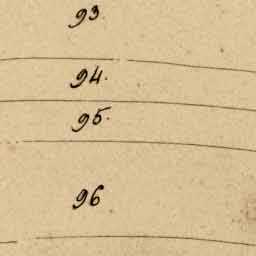 93.
94.
95.
96